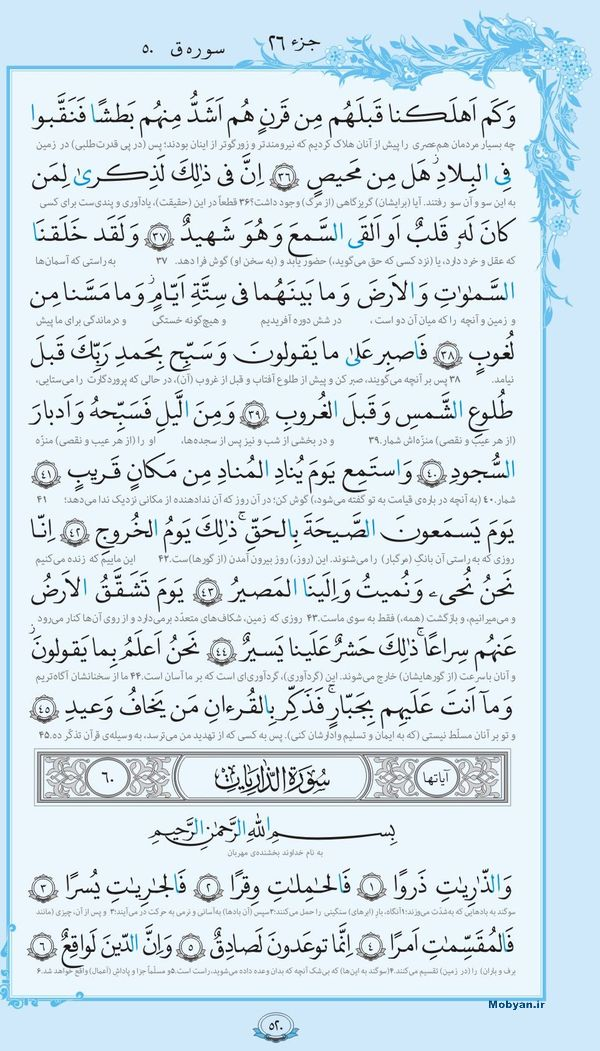 سوره ق ۵۰
جزء ۲۶
وَكَم اَهلَكنا قَبلَهُم مِن قَرنٍ هُم اَشَدُّ مِنهُم بَطشًا فَنَقَّبوا
چه بسیار مردمان هم‌عصری را پیش از آنان هلاک کردیم که نیرومندتر و زورگوتر از اینان بودند؛ پس (در پی قدرت‌طلبی) در زمین
فِی البِلادِ هَل مِن مَحیصٍ ۳۶ اِنَّ فی ذلِكَ لَذِكریٰ لِمَن
به این سو و آن سو رفتند. آیا (برایشان) گریزگاهی (از مرگ) وجود داشت؟ ۳۶ قطعاً در این (حقیقت)، یادآوری و پندی‌ست برای کسی
كانَ لَهٗ قَلبٌ اَو اَلقَی السَّمعَ وَ هُوَ شَهیدٌ ۳۷ وَ لَقَد خَلَقنَا
که عقل و خرد دارد، یا (نزد کسی که حق می‌گوید،) حضور یابد و (به سخن او) گوش فرا دهد. ۳۷ به راستی که آسمان‌ها
السَّمٰوٰتِ وَ الاَرضَ وَ ما بَینَهُما فی سِتَّةِ اَیّامٍ وَ ما مَسَّنا مِن
و زمین و آنچه را که میان آن دو است، در شش دوره آفریدیم و هیچ‌گونه خستگی و درماندگی برای ما پیش
لُغوبٍ ۳۸ فَاصبِر عَلیٰ ما یَقولونَ وَ سَبِّح بِحَمدِ رَبِّكَ قَبلَ
نیامد. ۳۸ پس بر آنچه می‌گویند، صبر کن و پیش از طلوع آفتاب و قبل از غروب (آن)، در حالی که پروردگارت را می‌ستایی،
طُلوعِ الشَّمسِ وَ قَبلَ الغُروبِ ۳۹ وَ مِنَ الَّیلِ فَسَبِّحهُ وَ اَدبارَ
(از هر عیب و نقصی) منزّه‌اش شمار. ۳۹ و در بخشی از شب و نیز پس از سجده‌ها، او را (از هر عیب و نقصی) منزّه
السُّجودِ ۴۰ وَ استَمِع یَومَ یُنادِ المُنادِ مِن مَكانٍ قَریبٍ ۴۱
شمار. ۴۰ (به آنچه در باره‌ی قیامت به تو گفته می‌شود،) گوش کن؛ در آن روز که آن ندادهنده از مکانی نزدیک ندا می‌دهد؛ ۴۱
یَومَ یَسمَعونَ الصَّیحَةَ بِالحَقِّ ذلِكَ یَومُ الخُروجِ ۴۲ اِنّا
روزی که به راستی آن بانگِ (مرگبار) را می‌شنوند. این (روز،) روز بیرون آمدن (از گورها)ست. ۴۲ این ماییم که زنده می‌کنیم
نَحنُ نُحیی وَ نُمیتُ وَ اِلَینَا المَصیرُ ۴۳ یَومَ تَشَقَّقُ الاَرضُ
و می‌میرانیم، و بازگشت (همه،) فقط به سوی ماست. ۴۳ روزی که زمین، شکاف‌های متعدّد برمی‌دارد و از روی آن‌ها کنار می‌رود
عَنهُم سِراعًا ذلِكَ حَشرٌ عَلَینا یَسیرٌ ۴۴ نَحنُ اَعلَمُ بِما یَقولونَ
و آنان با سرعت (از گورهایشان) خارج می‌شوند. این (گردآوری)، گردآوری‌ای است که بر ما آسان است. ۴۴ ما از سخنانشان آگاه‌تریم
وَ ما اَنتَ عَلَیهِم بِجَبّارٍ فَذَكِّر بِالقُرءانِ مَن یَخافُ وَعیدِ ۴۵
و تو بر آنان مسلّط نیستی (که به ایمان و تسلیم وادارشان کنی). پس به کسی که از تهدید من می‌ترسد، به وسیله‌ی قرآن تذکّر ده. ۴۵
آیاتها سُورَةُ الذّاریات ۶۰
بِسمِ اللهِ الرَّحمٰنِ الرَّحیمِ
به نام خداوند بخشنده‌ی مهربان
وَ الذّارِیٰتِ ذَروًا ۱ فَالحٰمِلٰتِ وِقرًا ۲ فَالجٰرِیٰتِ یُسرًا ۳
سوگند به بادهایی که به‌شدّت می‌وزند؛ ۱ آنگاه، بار (ابرهای) سنگینی را حمل می‌کنند؛ ۲ سپس (آن بادها) به‌آسانی و نرمی به حرکت در می‌آیند؛ ۳ و پس از آن، چیزی (مانند
فَالمُقَسِّمٰتِ اَمرًا ۴ اِنَّما توعَدونَ لَصادِقٌ ۵ وَ اِنَّ الدّینَ لَواقِعٌ ۶
برف و باران) را (در زمین) تقسیم می‌کنند. ۴ (سوگند به این‌ها) که بی‌شک آنچه که بدان وعده داده می‌شوید، راست است. ۵ و مسلّماً جزا و پاداشِ (اعمال) واقع خواهد شد. ۶
Mobyan.ir
۵۲۰